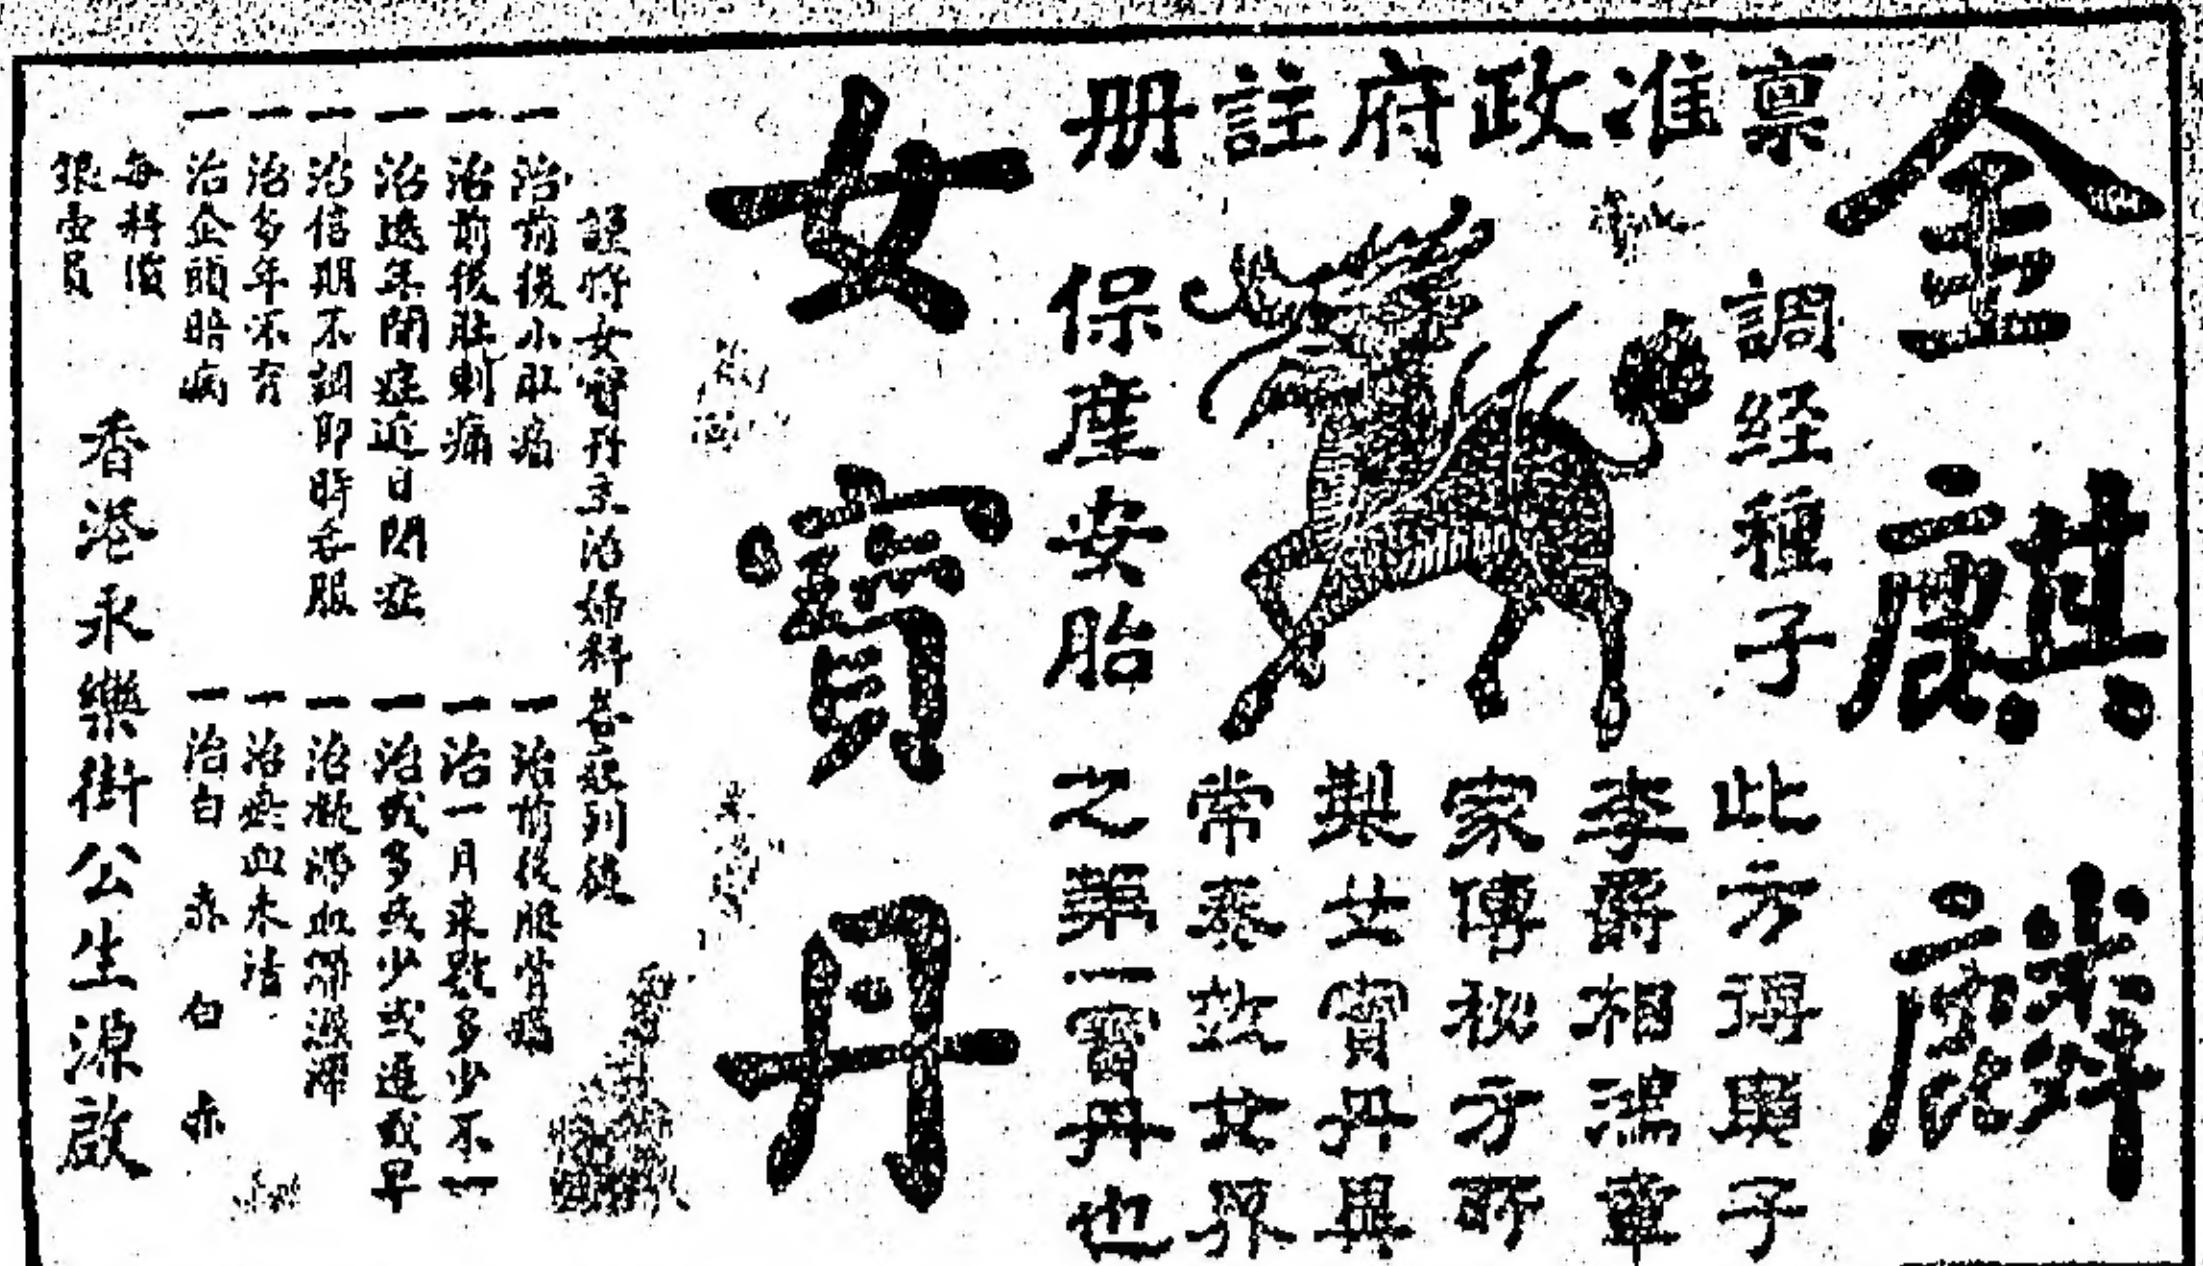 金麒麟
稟准政府註册
調経種子
保産安胎
此方得與子
李爵相鴻章
家傳秘方所
製女寶丹異
常奏效女界
之第一寶丹也
女寶丹
謹將女寶丹主治婦科各症列後
一治前後小肚痛
一治前後肚刺痛
一治遠年閉症近日閉症
一治信期不調即時吞服
一治多年不育
一治企頭暗病
一治前後腰骨痛
一治一月来數多少不一
一治或多或少或遲或早
一治血
一治瘀血未清
一治白赤白赤
每料價
銀壹員
香港永樂街公生源啟